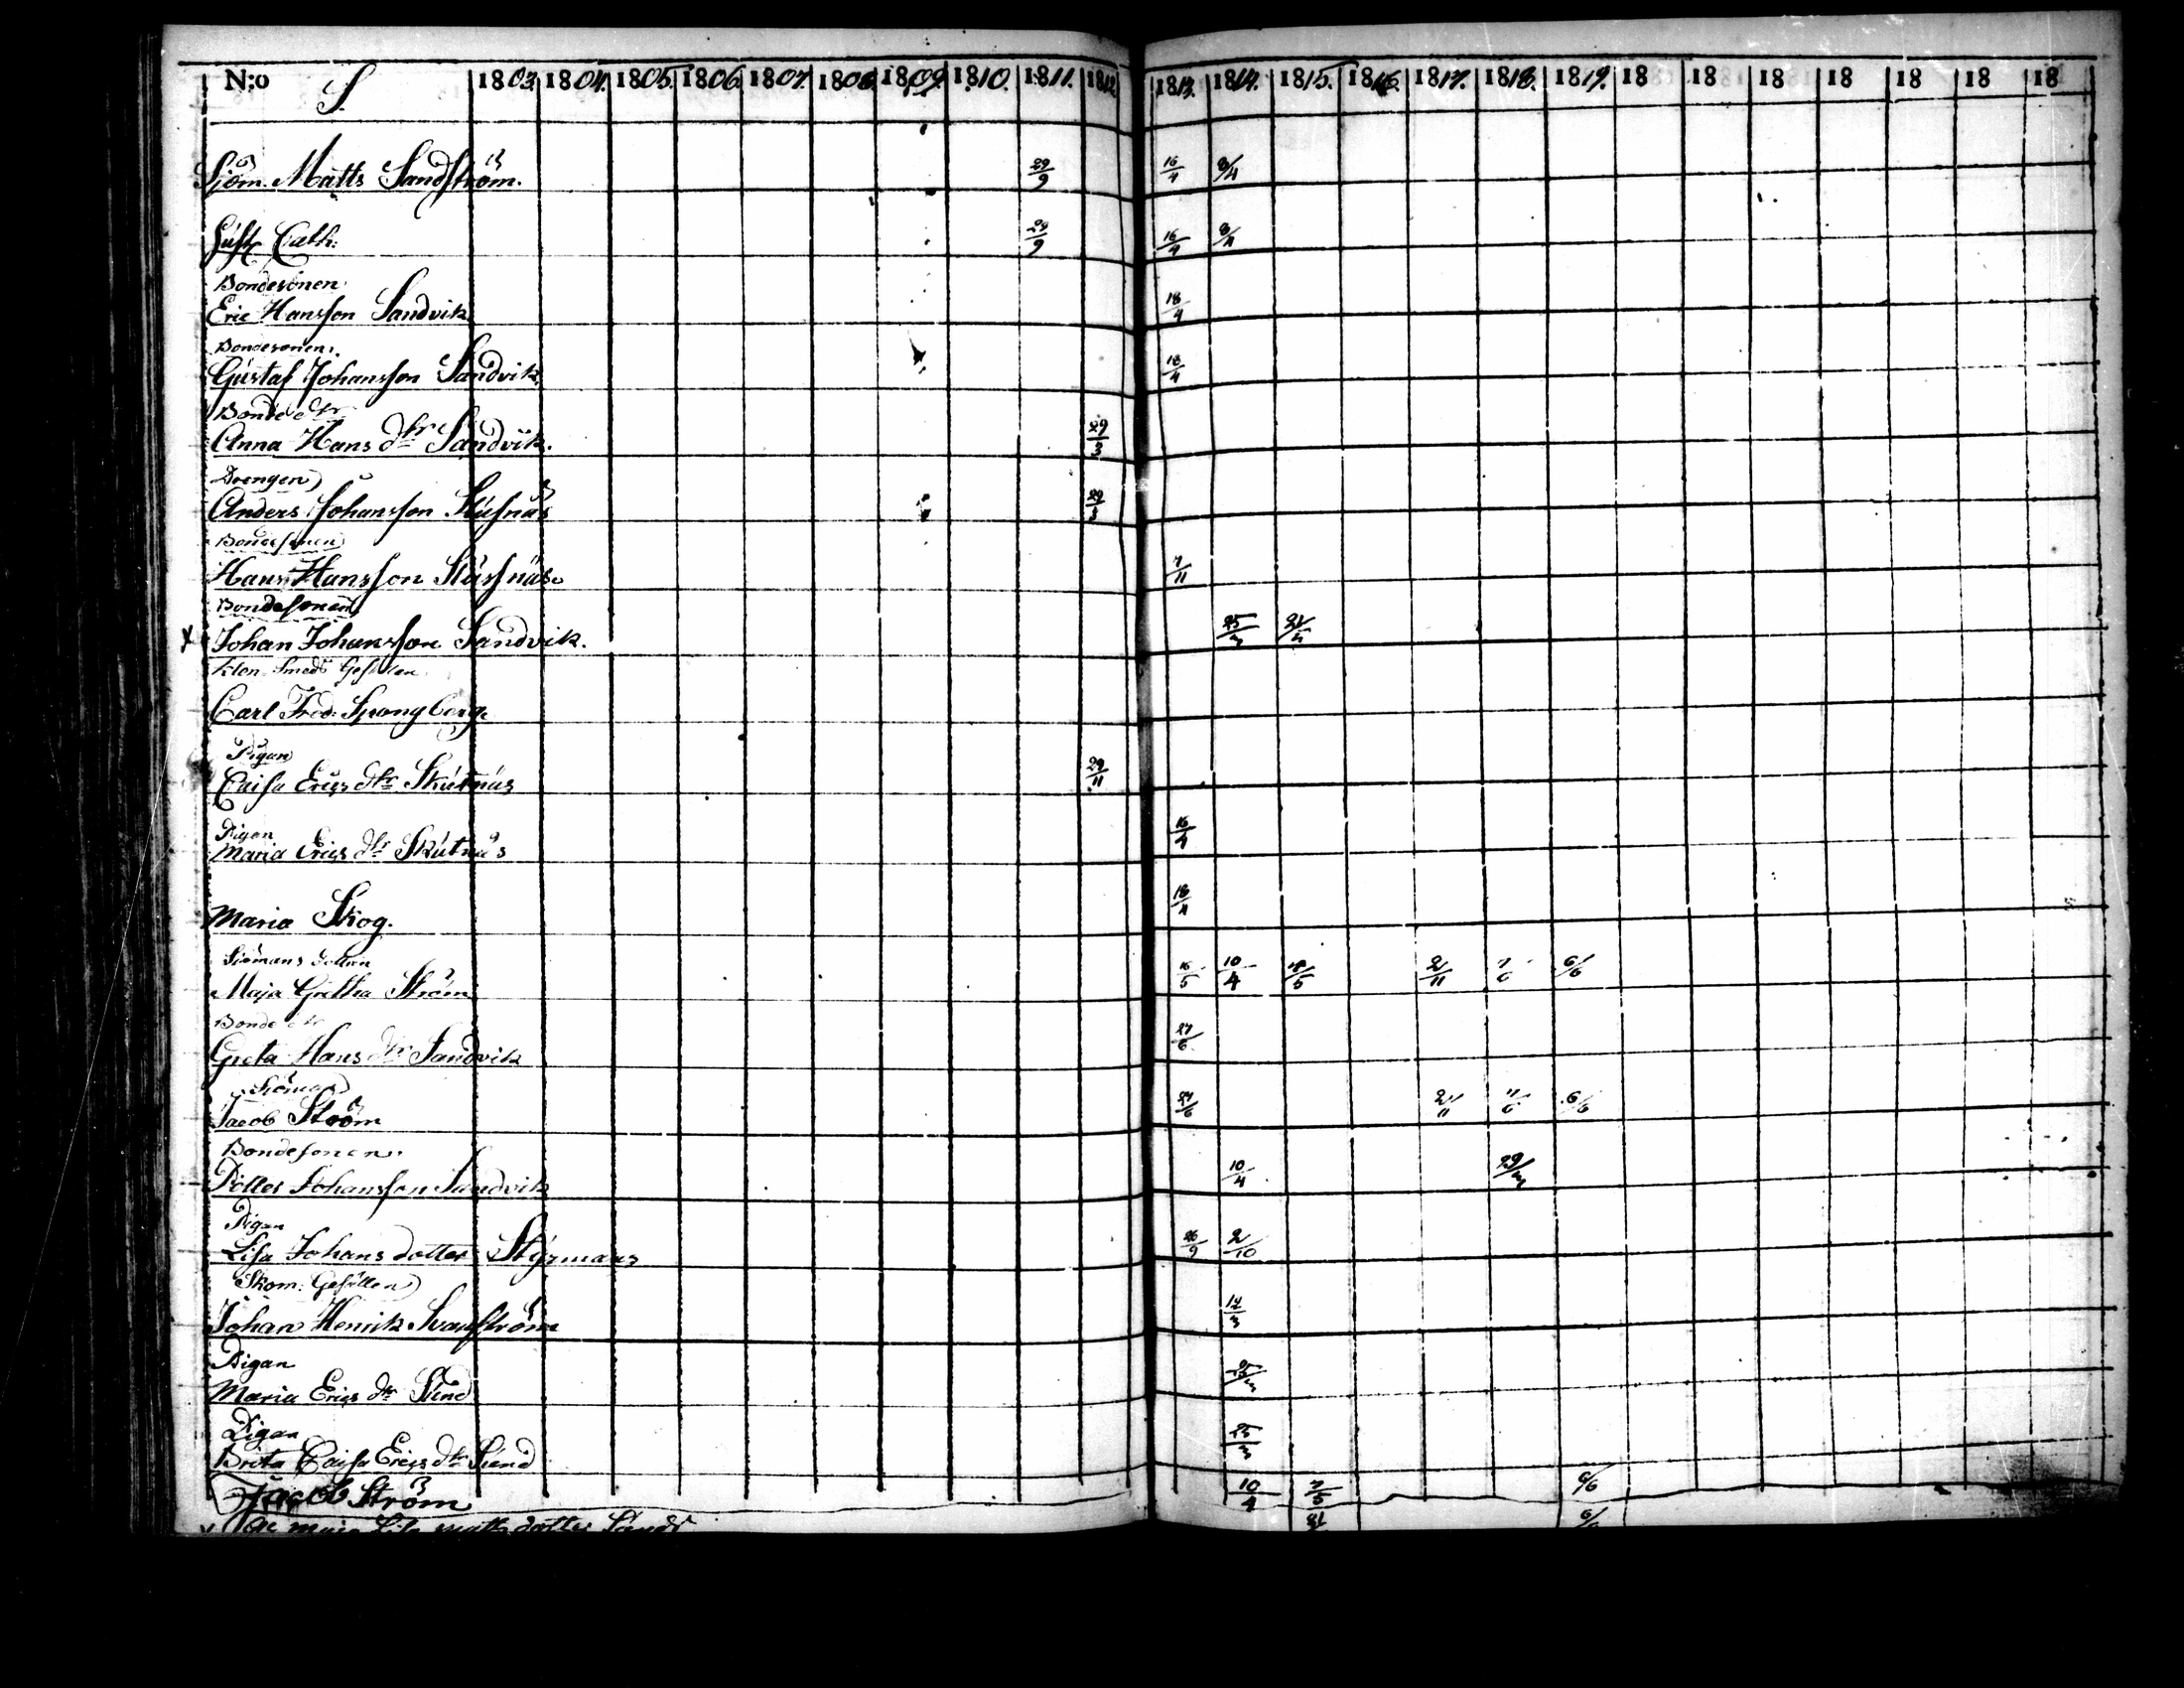 N:o S 1803. 1804. 1805. 1806. 1807. 1808. 1809. 1810. 1811. 1812 1813. 1814. 1815. 1816. 1817. 1818. 1819. 18 18 18 18 18 18 18
Sjöm. Matts Sandström. 29/9 16/4 3/4
Hust. Cath: 29/9 16/4 3/4
Bondesonen
Eric Hansson Sandvik 18/4
Bondesonen
Gustaf Johansson Sandvik 18/4
Bonde dtr
Anna Hans dtr Sandvik. 29/3
Drengen
Anders Johansson 29/3
Bondesonen
Hans Hansson 7/11
Bondesonen
x Johan Johansson Sandvik. 25/3
Smeds Gesellen
Carl Fred: Spongberg.
Pigan
Caisa Erics dtr Skutnäs 29/11
Pigan
Maria Erics dtr Skutnäs 16/4
Maria Skog. 18/4
Siömans dottren
Maja Gretha Ström 16/5 10/4 2/11 6/6
Bonde dtr
Greta Hans dtr Sandvik 27/6
Siöman
Jacob Ström 27/6 2/11 6/6
Bondesonen
Petter Johansson Sandvik 10/4 29/3
Pigan
Lisa Johans dotter Styrmans 26/9 2/10
Skom: Gesällen
Johan Henrik Svanström 14/3
Pigan
Maria Erics dtr Sund 25/3
Pigan
Brita Caisa Erics dtr Sund 25/3
Jacob Ström 10/4 7/5 6/6
Maja Lisa Matts dotter